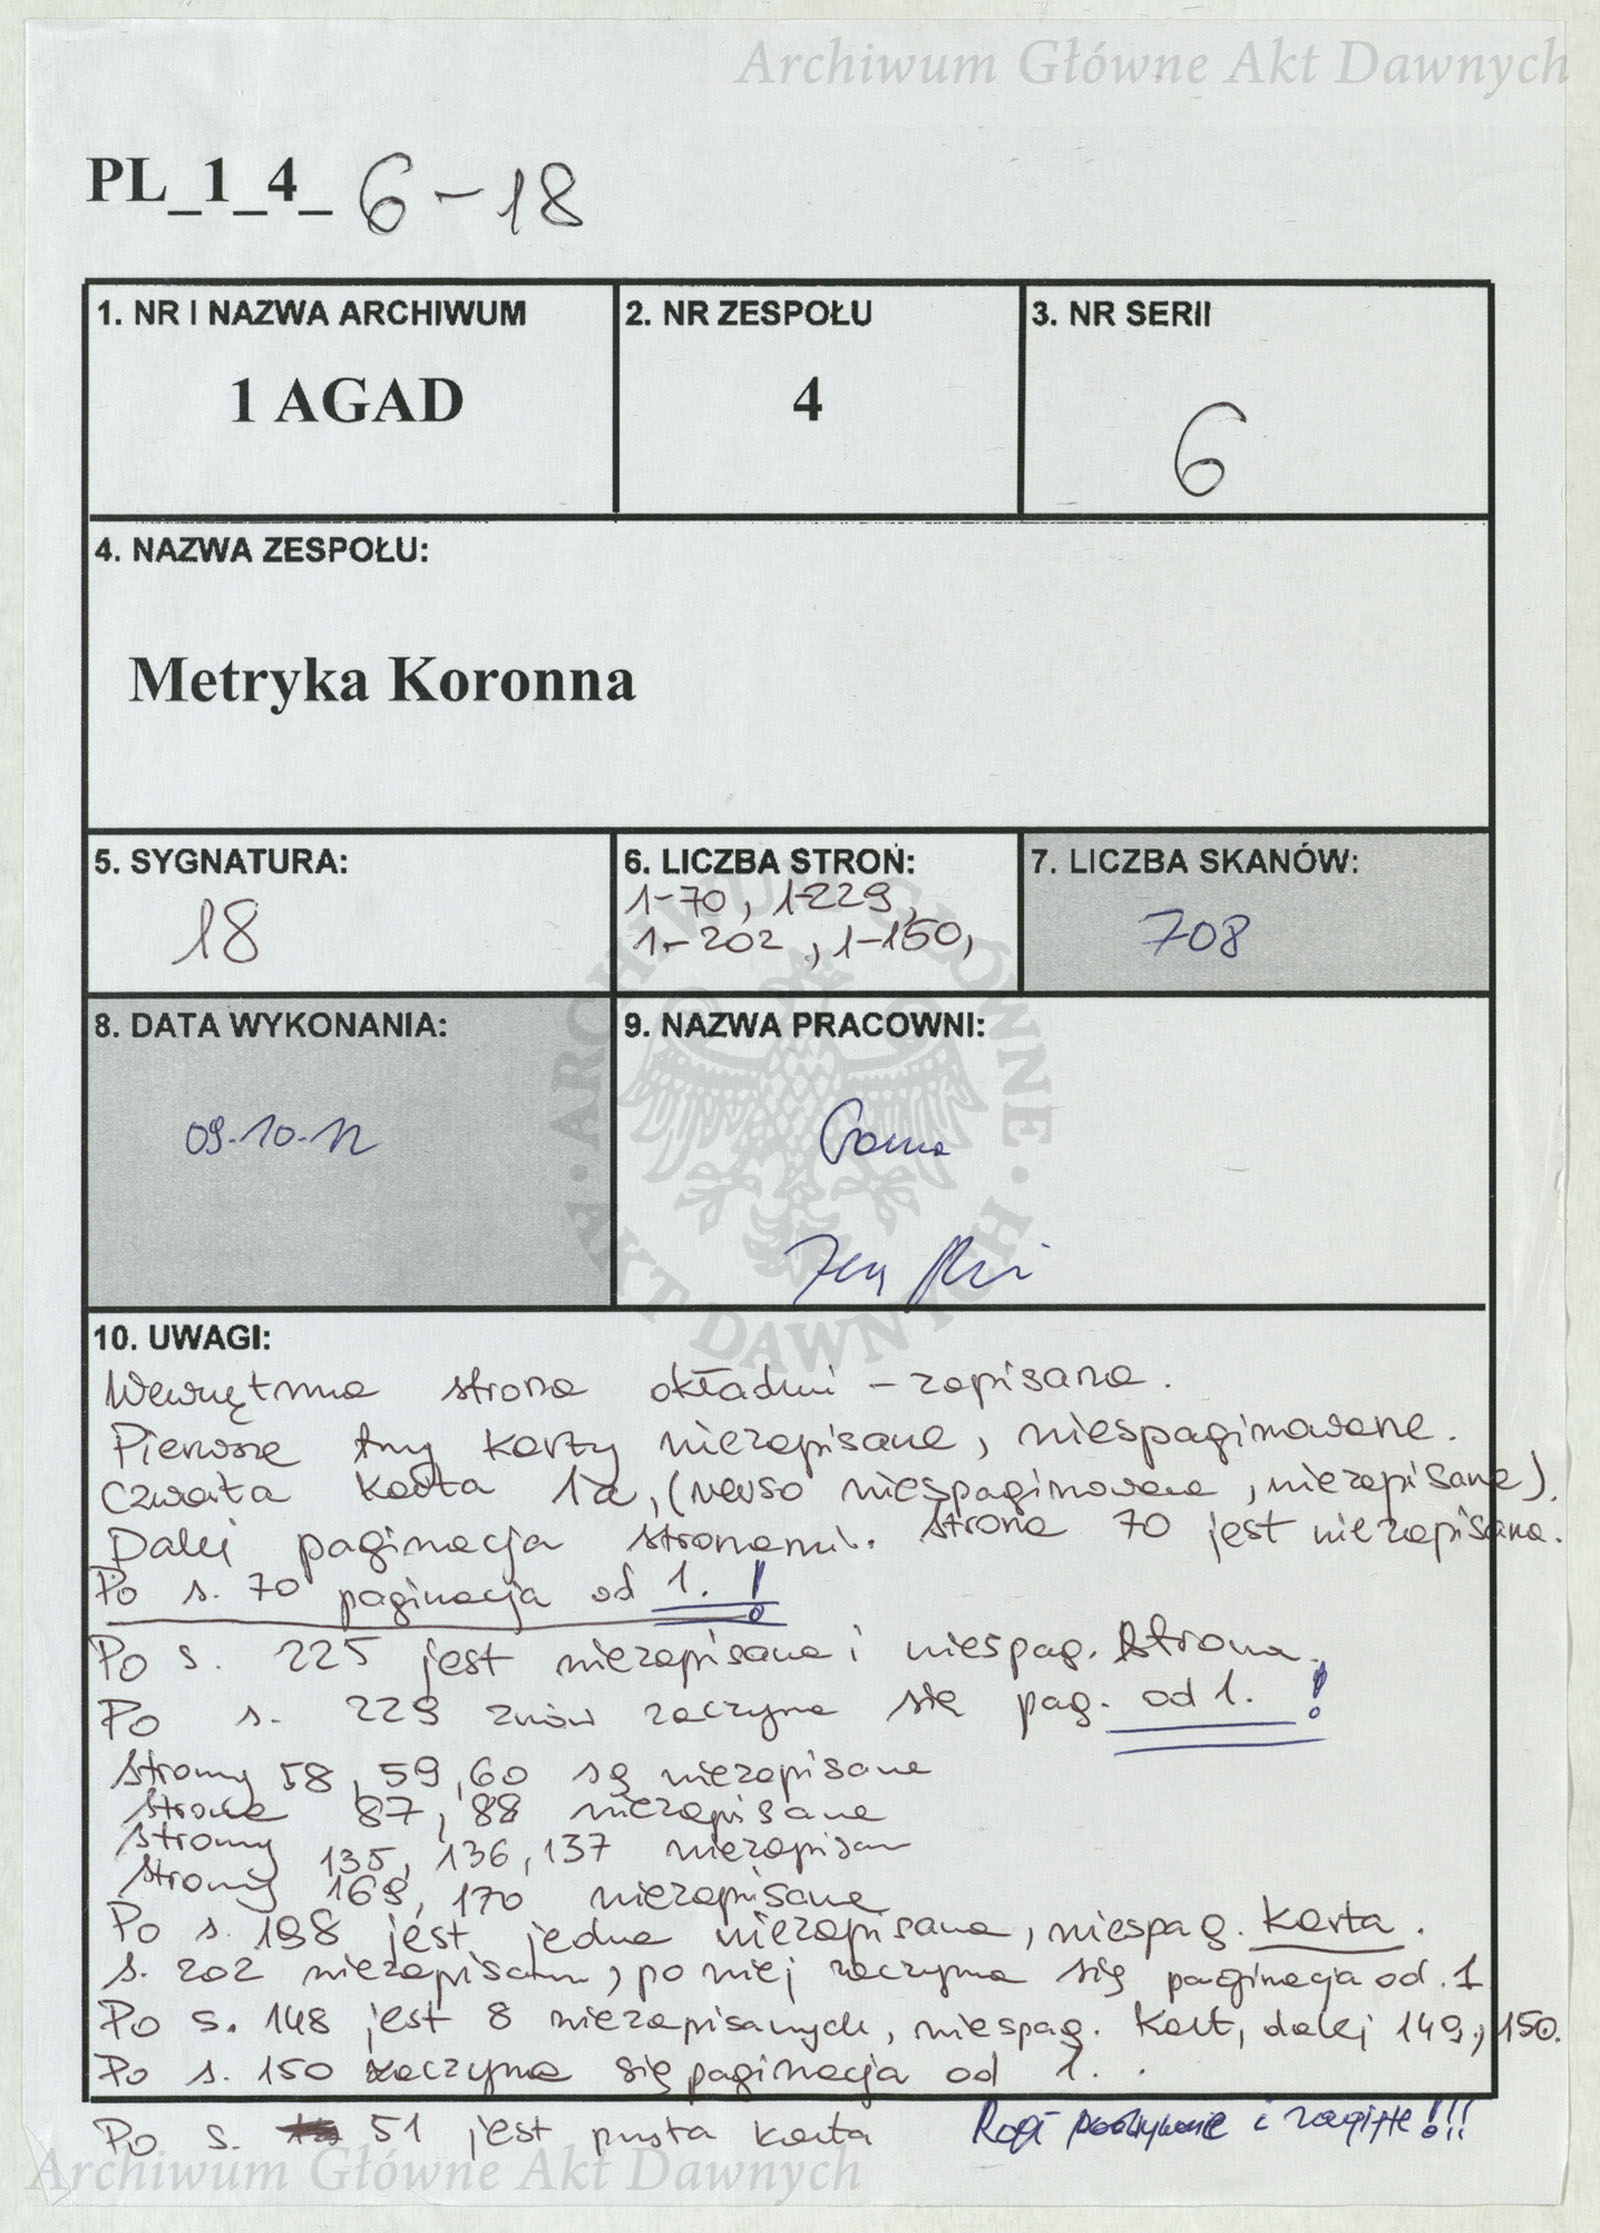 Archiwum Główne Akt Dawnych
PL_1_4_ 6-18
1. NR I NAZWA ARCHIWUM
1 AGAD
2. NR ZESPOŁU
4
3. NR SERII
6
4. NAZWA ZESPOŁU:
Metryka Koronna
5. SYGNATURA:
18
6. LICZBA STRON:
1-70, 1-229,
1-202, 1-150,
7. LICZBA SKANÓW:
708
8. DATA WYKONANIA:
09-10-12
9. NAZWA PRACOWNI:
ARCHIWUM GŁÓWNE · AKT DAWNYCH ·
10. UWAGI:
Wewnętrzna strona okładki - zapisana.
Pierwsze trzy karty niezapisane, niespaginowane.
Czwarta karta 1a, (verso niespaginowane, niezapisane).
Dalej paginacja stronami. Strona 70 jest niezapisana.
Po s. 70 paginacja od 1. !
Po s. 225 jest niezapisana i niespag. strona.
Po s. 229 znów zaczyna się pag. od 1. !
Strony 58, 59, 60 są niezapisane
Strone 87, 88 niezapisane
Strony 135, 136, 137 niezapisan
Strony 169, 170 niezapisane
Po s. 198 jest jedna niezapisana, niespag. karta.
s. 202 niezapisana, po niej zaczyna się paginacja od. 1
Po s. 148 jest 8 niezapisanych, niespag. kart, dalej 149, 150.
Po s. 150 zaczyna się paginacja od 1.
Po s. 51 jest pusta karta
Rogi i zagięte!!!
Archiwum Główne Akt Dawnych